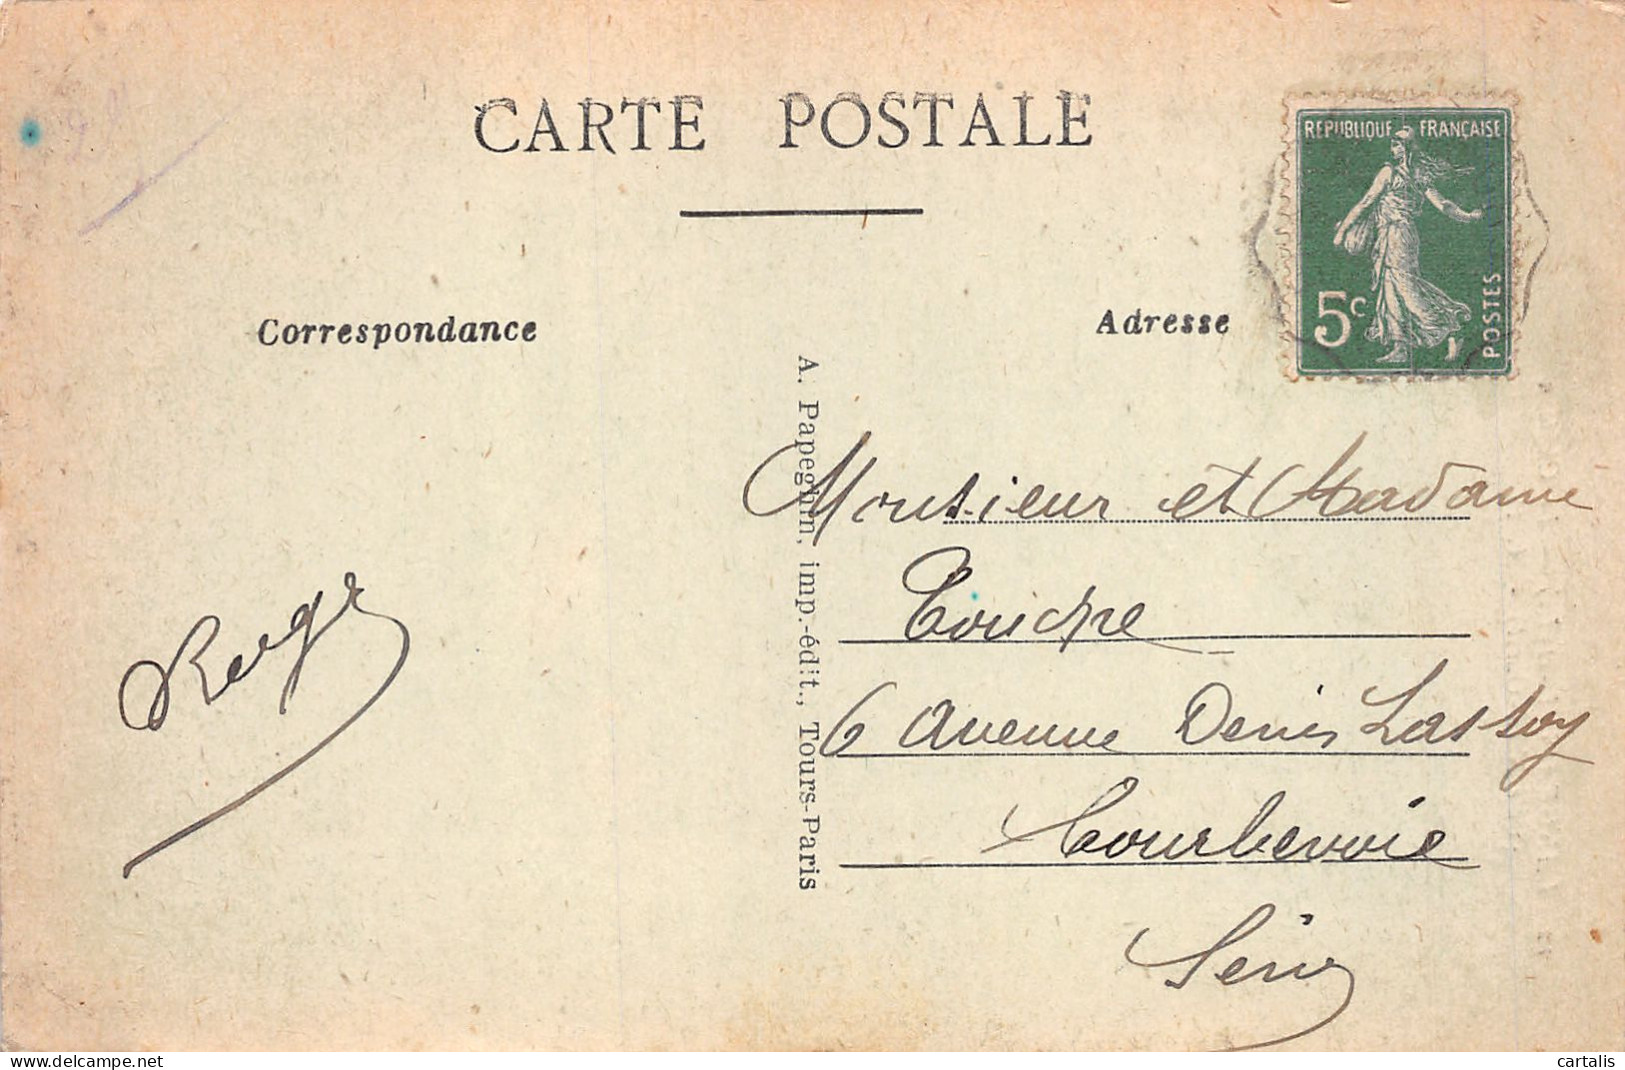 CARTE POSTALE
REPUBLIQUE FRANÇAISE
5c
POSTES
Correspondance
Adresse
A. Papeghin, imp.-édit., Tours-Paris
Monsieur et Madame
6 Avenue Denis
Courbevoie
Seine
Roger
cartalis